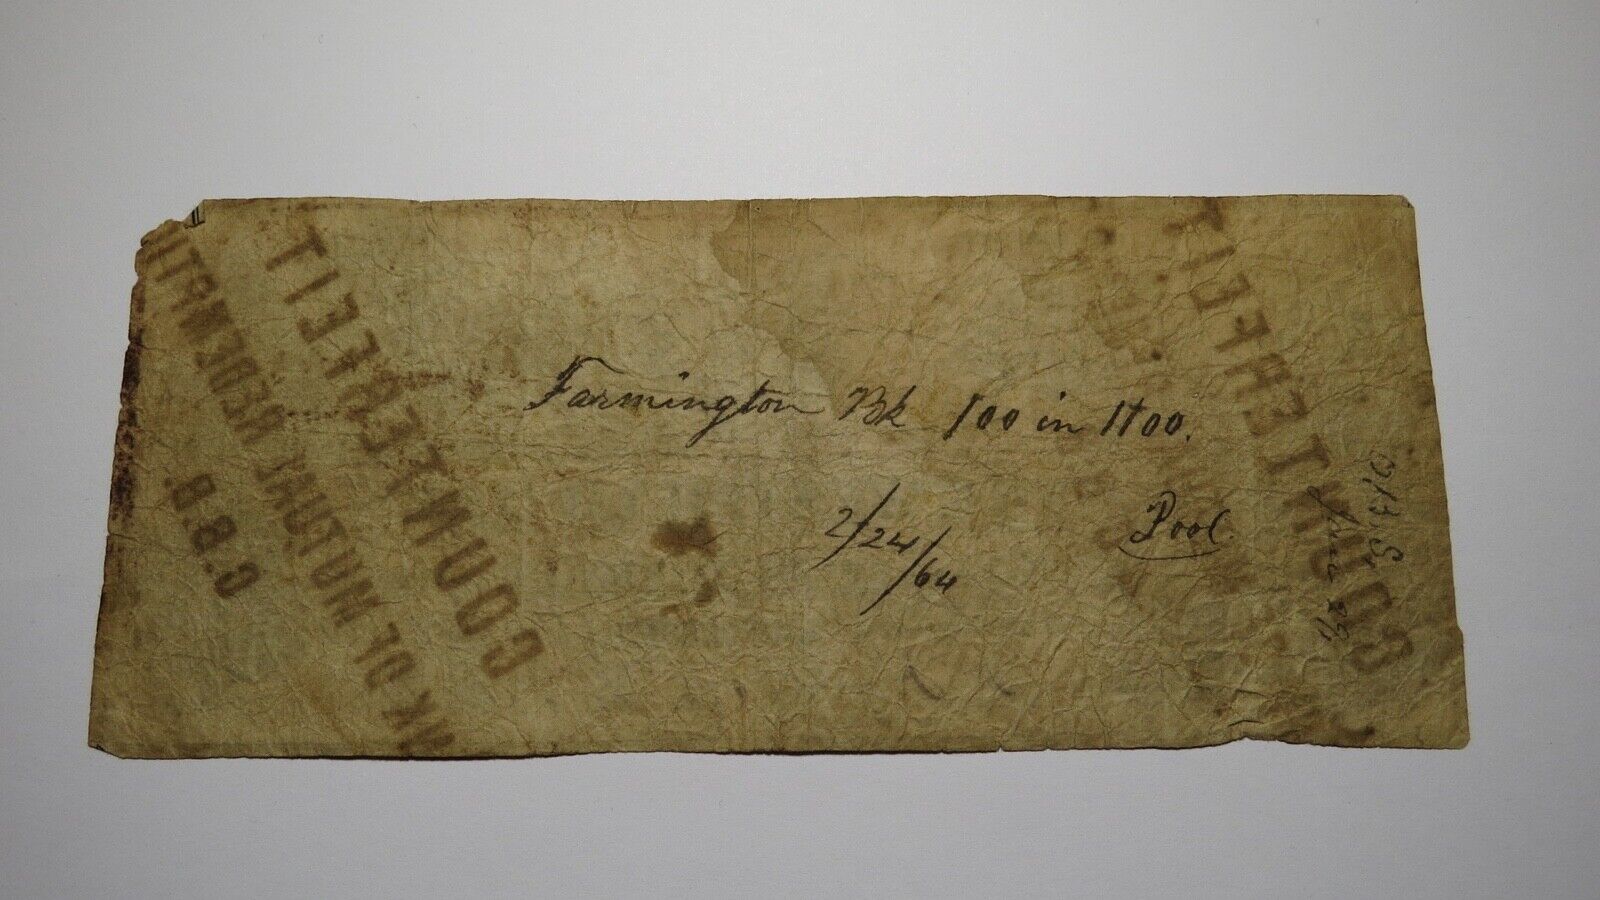 Farmington Bk 100 in 1100.
2/24/64
Pool.
COUNTERFEIT
BANK OF MUTUAL REDEMPTION
C.B.B.
COUNTERFEIT